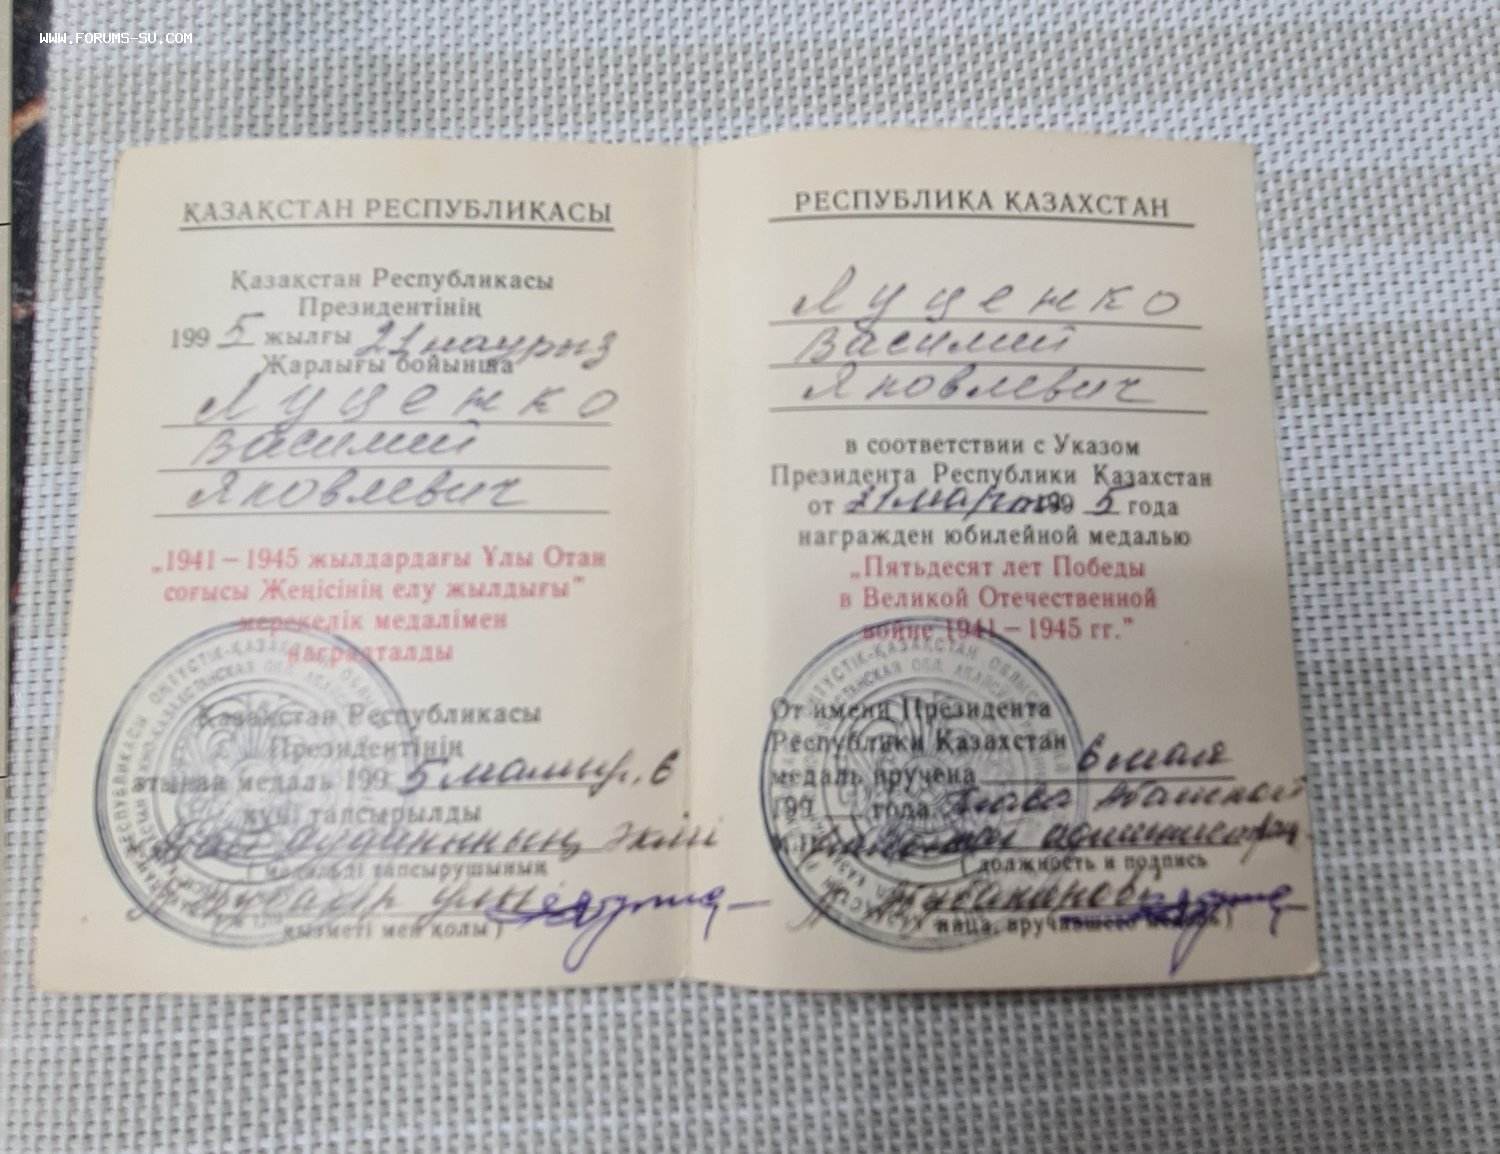 WWW.FORUMS-SU.COM
ҚАЗАҚСТАН РЕСПУБЛИКАСЫ
Қазақстан Республикасы
Президентінің
1995 жылғы 21 наурыз
Жарлығы бойынша
Луценко
Василий
Яковлевич
„1941 – 1945 жылдардағы Ұлы Отан
соғысы Жеңісінің елу жылдығы"
мерекелік медалімен
наградталды
Қазақстан Республикасы
Президентінің
атынан медаль 1995 мамыр. 6
күні тапсырылды
ауданының әкімі
( медальді тапсырушының
қызметі мен қолы )
РЕСПУБЛИКА КАЗАХСТАН
Луценко
Василий
Яковлевич
в соответствии с Указом
Президента Республики Казахстан
от 21 марта 1995 года
награжден юбилейной медалью
„Пятьдесят лет Победы
в Великой Отечественной
войне 1941 – 1945 гг."
От имени Президента
Республики Казахстан
медаль вручена 6 мая
199 года Глава
( должность и подпись
лица, вручившего медаль )